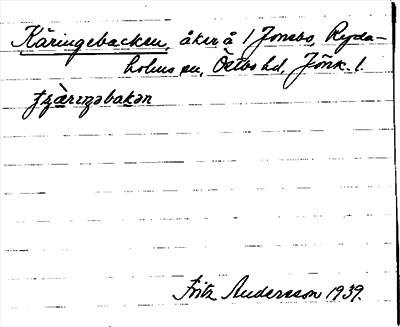 Käringebacken, åker å 1 Jonsbo, Ryda-
holms sn, Östbo hd, Jönk. l.
tjæ̀rıŋəbakən
Fritz Andersson 1939.